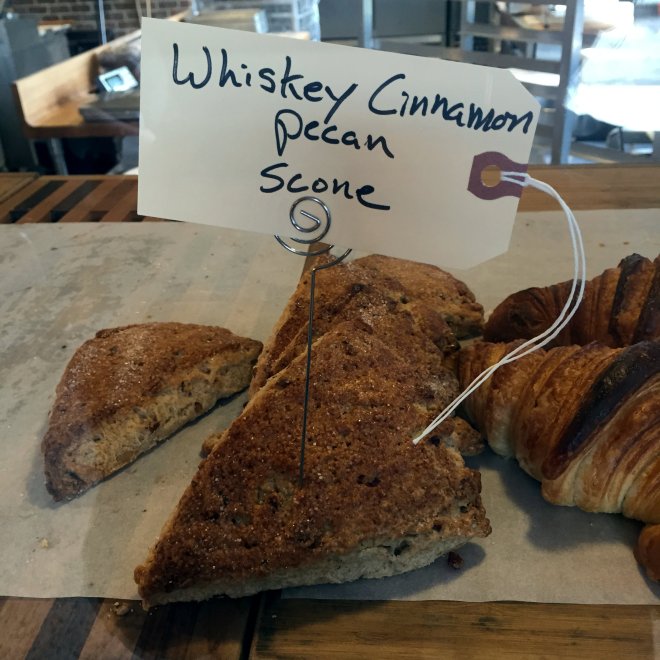 Whiskey Cinnamon
Pecan
Scone